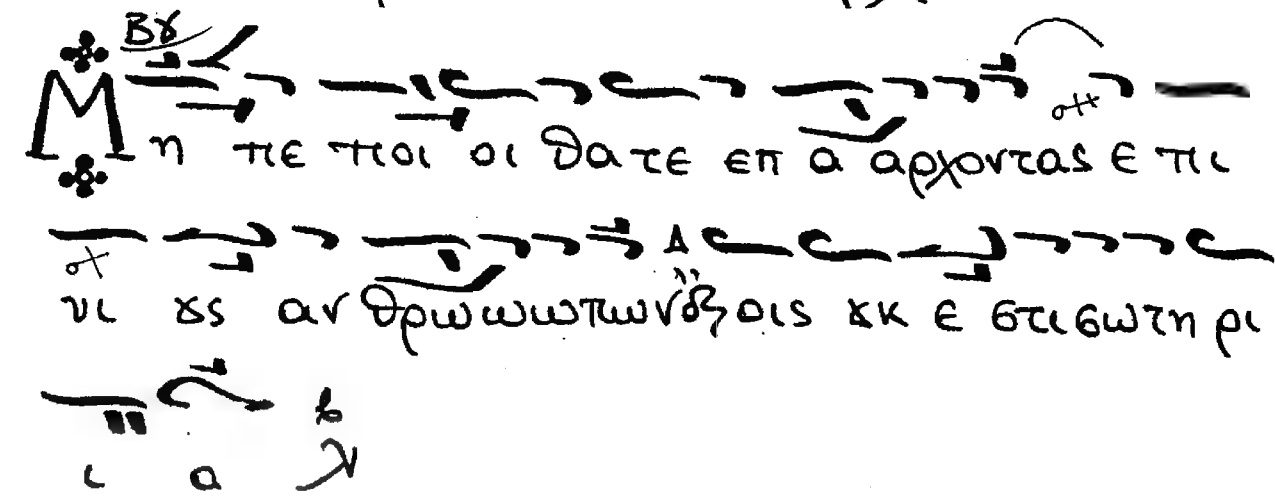 Βȣ
Μη πε ποι οι θα τε επ α αρχοντας ε πι
νι ȣς αν θρω ω ω πων οις ȣκ ε στι σωτη ρι
ι α